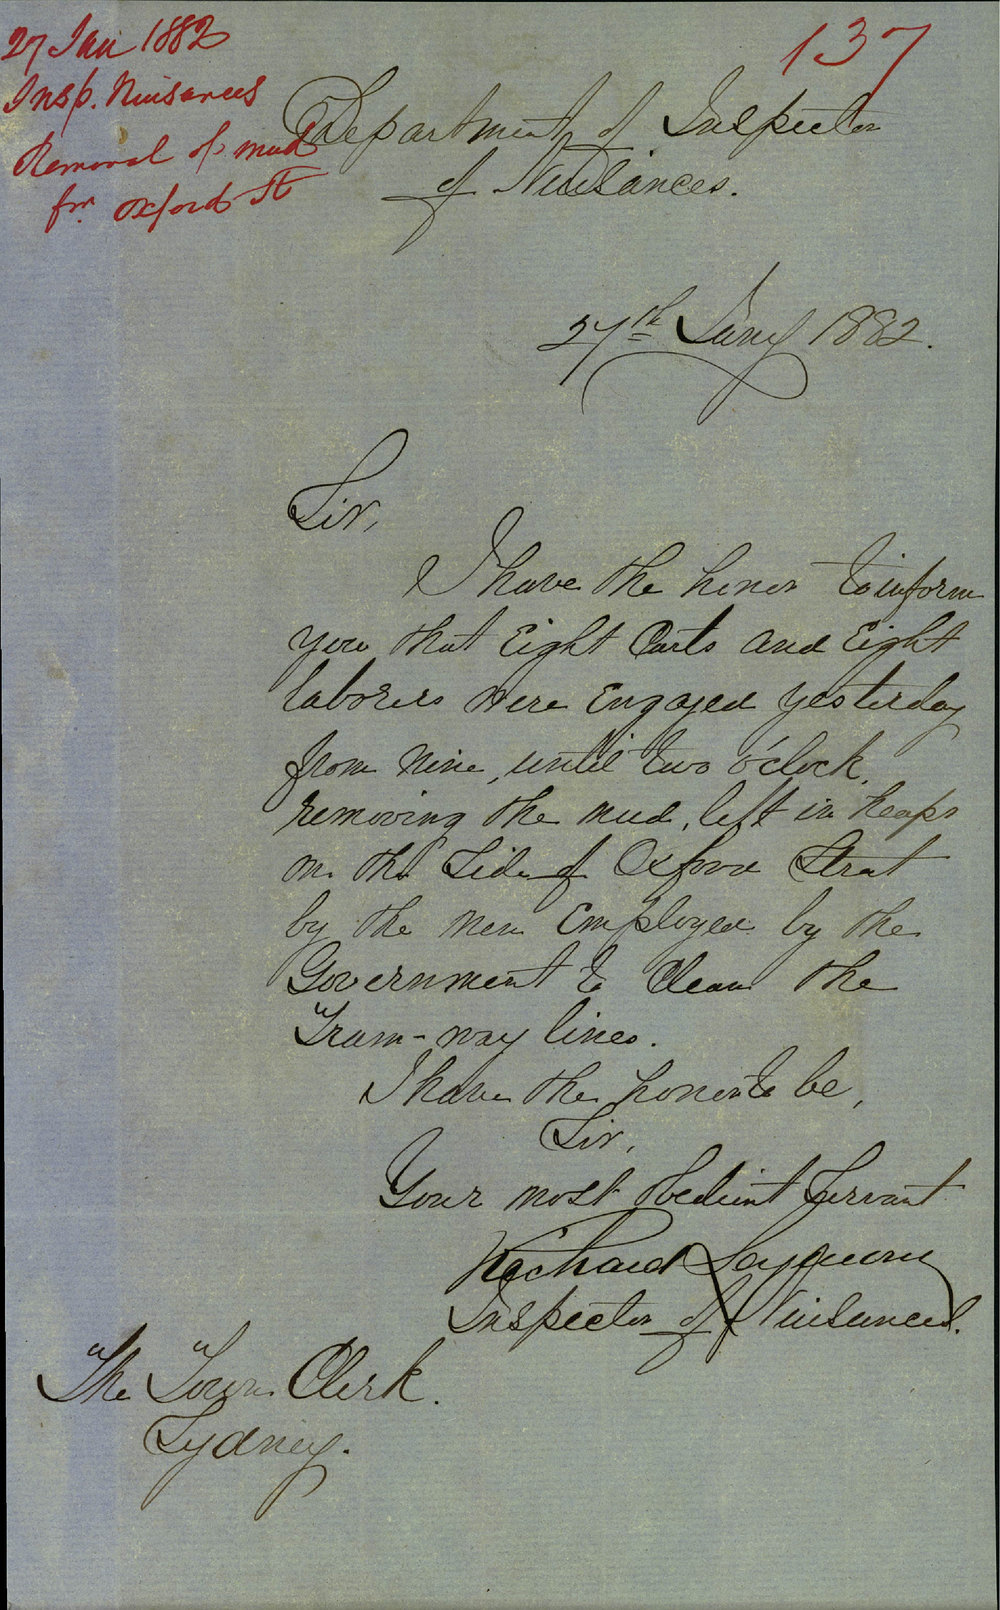 27 Jan 1882
Insp. Nuisances
Removal of mud
frm Oxford St
137
Department of Inspector
of Nuisances.
27th Jany 1882.
Sir,
I have the honor to inform
you that Eight Carts and Eight
laborers were Engaged yesterday
from nine, until two o'clock,
removing the mud, left in heaps
on the Side of Oxford Street
by the men Employed by the
Government to Clean the
Tram-way lines.
I have the honor to be,
Sir,
Your most obedient Servant
Richard Seymour
Inspector of Nuisances.
The Town Clerk.
Sydney.